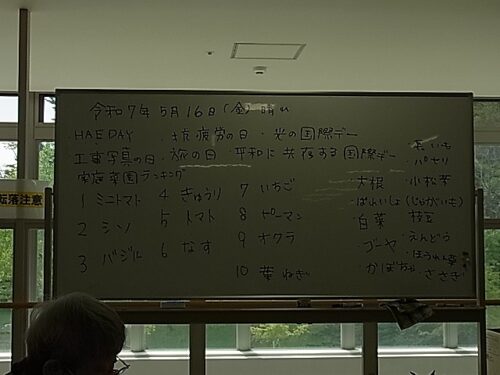 令和7年 5月16日(金) 晴れ
・HAE DAY ・抗疲労の日 ・光の国際デー
・工事写真の日 ・旅の日 ・平和に共存する国際デー
家庭菜園ランキング
1 ミニトマト 4 きゅうり 7 いちご
2 シソ 5 トマト 8 ピーマン
3 バジル 6 なす 9 オクラ
10 葉ねぎ
長いも
・パセリ
・大根 ・小松菜
・ばれいしょ(じゃがいも)
・白菜 ・枝豆
・ゴーヤ ・えんどう
・ほうれん草
・かぼちゃ ・ささぎ
転落注意